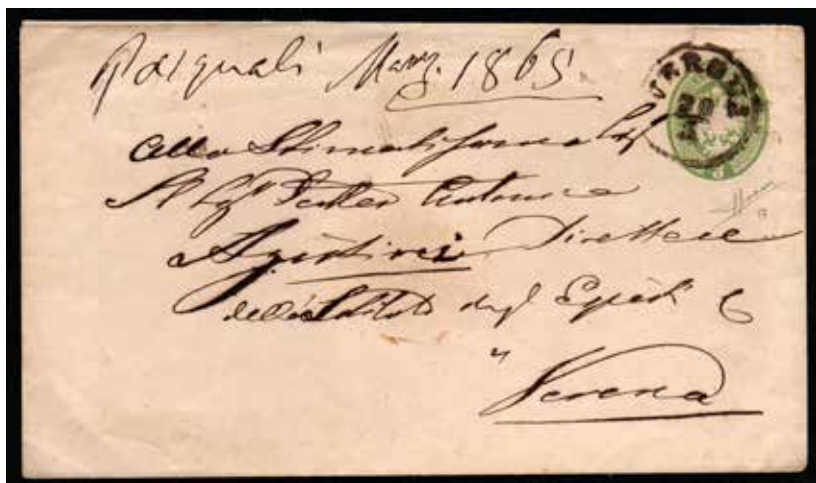 Pasquali Marz. 1865
VERONA
20
Allo Stimatissimo
Antonio
Agostini Direttore
dell'Istituto degli Esposti
Verona